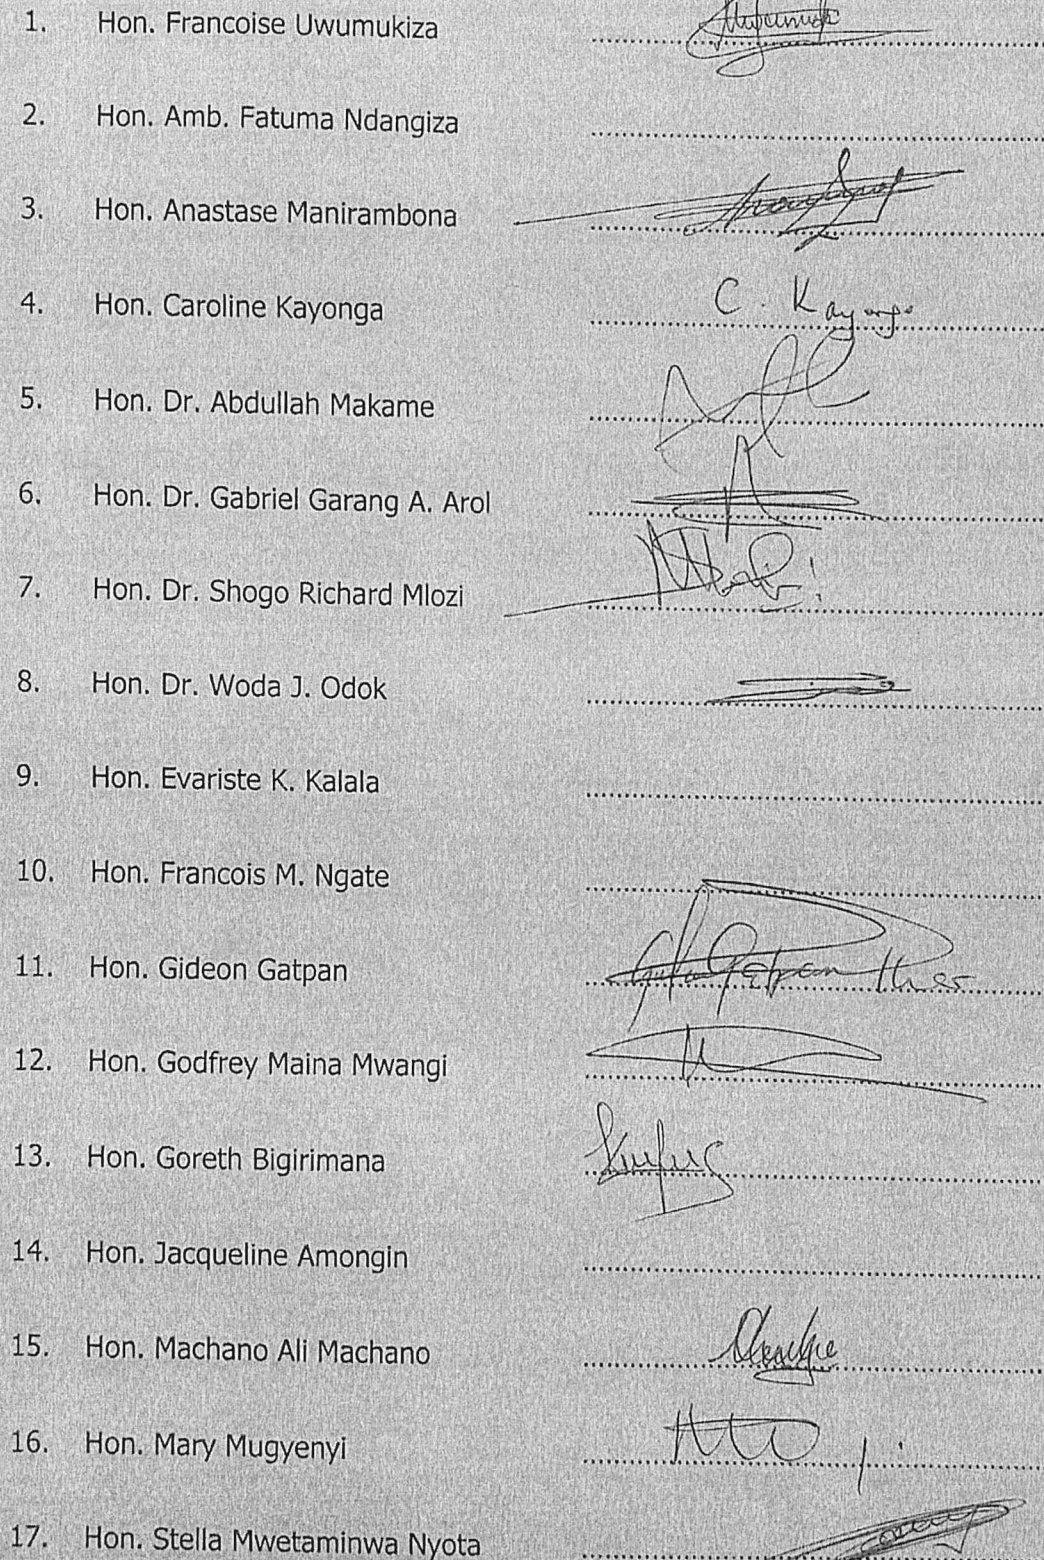 1. Hon. Francoise Uwumukiza
2. Hon. Amb. Fatuma Ndangiza
3. Hon. Anastase Manirambona
4. Hon. Caroline Kayonga C. Kayonga
5. Hon. Dr. Abdullah Makame
6. Hon. Dr. Gabriel Garang A. Arol
7. Hon. Dr. Shogo Richard Mlozi
8. Hon. Dr. Woda J. Odok
9. Hon. Evariste K. Kalala
10. Hon. Francois M. Ngate
11. Hon. Gideon Gatpan Gatpan
12. Hon. Godfrey Maina Mwangi
13. Hon. Goreth Bigirimana
14. Hon. Jacqueline Amongin
15. Hon. Machano Ali Machano
16. Hon. Mary Mugyenyi
17. Hon. Stella Mwetaminwa Nyota